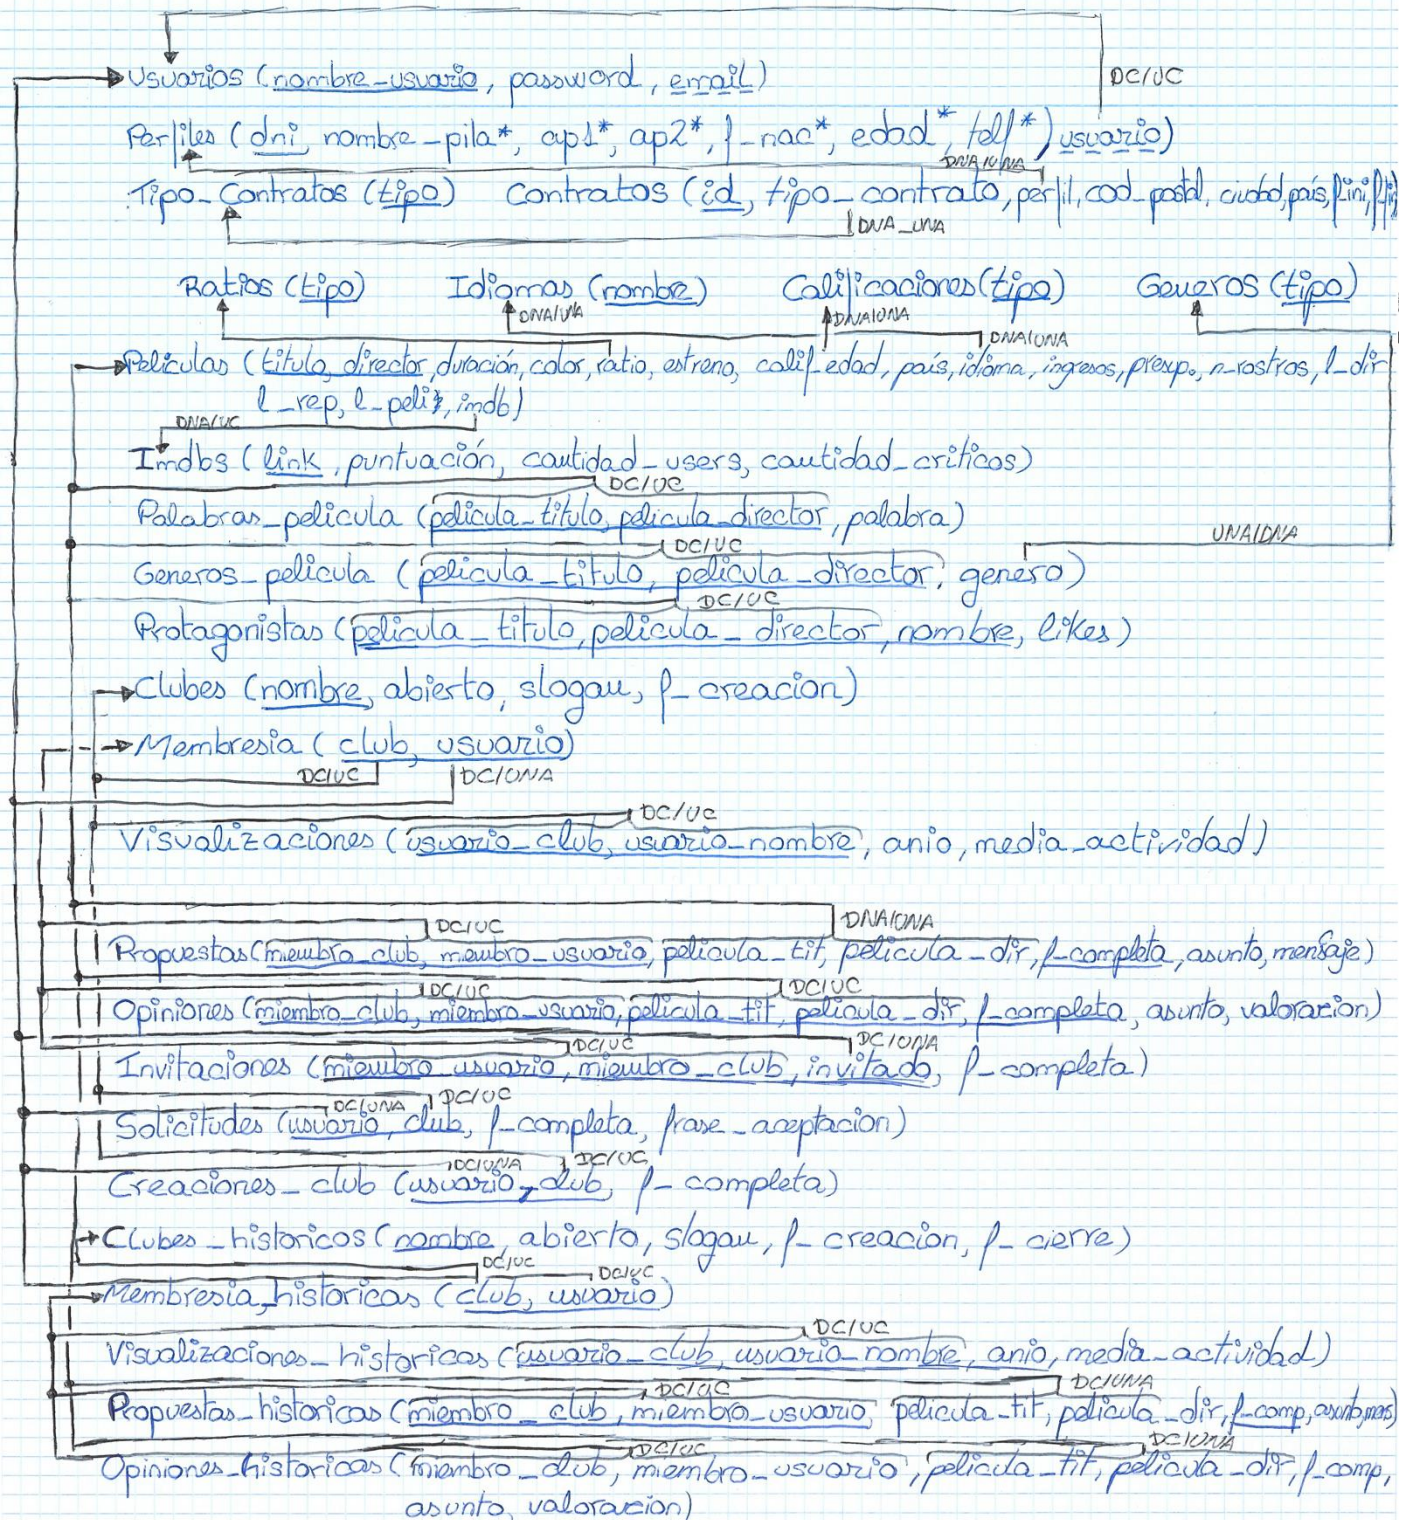 Usuarios (nombre-usuario, password, email)
DC/UC
Perfiles (dni, nombre-pila*, ap1*, ap2*, f-nac*, edad*, telf*, usuario)
DNA/UNA
Tipo-Contratos (tipo) Contratos (id, tipo-contrato, perfil, cod-postal, ciudad, país, f-ini, f-fin)
DNA-UNA
Ratios (tipo) Idiomas (nombre) Calificaciones (tipo) Generos (tipo)
DNA/UNA DNA/UNA DNA/UNA
Peliculas (titulo, director, duración, color, ratio, estreno, calif-edad, país, idioma, ingresos, presup., n-rostros, l-dir
l_rep, l-peli, imdb)
DNA/UC
Imdbs (link, puntuación, cantidad-users, cantidad-criticos)
DC/UC
Palabras-pelicula (pelicula-titulo, pelicula-director, palabra)
DC/UC UNA/DNA
Generos-pelicula (pelicula-titulo, pelicula-director, genero)
DC/UC
Protagonistas (pelicula-titulo, pelicula-director, nombre, likes)
Clubes (nombre, abierto, slogan, f-creacion)
Membresia (club, usuario)
DC/UC DC/UNA
DC/UC
Visualizaciones (usuario-club, usuario-nombre, anio, media-actividad)
DC/UC DNA/UNA
Propuestas (miembro-club, miembro-usuario, pelicula-tit, pelicula-dir, f-completa, asunto, mensaje)
DC/UC DC/UC
Opiniones (miembro-club, miembro-usuario, pelicula-tit, pelicula-dir, f-completa, asunto, valoracion)
DC/UC DC/UNA
Invitaciones (miembro-usuario, miembro-club, invitado, f-completa)
DC/UNA DC/UC
Solicitudes (usuario, club, f-completa, frase-aceptacion)
DC/UNA DC/UC
Creaciones-club (usuario, club, f-completa)
Clubes-historicos (nombre, abierto, slogan, f-creacion, f-cierre)
DC/UC DC/UC
Membresia-historicas (club, usuario)
DC/UC
Visualizaciones-historicas (usuario-club, usuario-nombre, anio, media-actividad)
DC/UC DC/UNA
Propuestas-historicas (miembro-club, miembro-usuario, pelicula-tit, pelicula-dir, f-comp, asunto, mens)
DC/UC DC/UNA
Opiniones-historicas (miembro-club, miembro-usuario, pelicula-tit, pelicula-dir, f-comp,
asunto, valoracion)